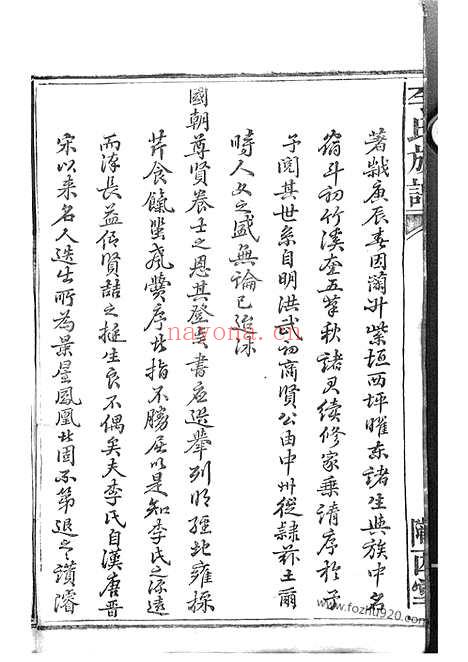 李氏族譜
著戡庚辰春因蘭升紫垣西坪曜東諸生與族中名
宿斗初竹溪奎五葦秋諸君續修家乘請序於予
予閱其世系自明洪武初商賢公由中州從隸茲土爾
時人文之盛無論已治深
國朝尊賢養士之恩其登賢書應選舉列明經北雍採
芹食餼蜚聲黌序者指不勝屈以是知李氏之源遠
而流長益信賢喆之挺生良不偶矣夫李氏自漢唐晉
宋以來名人迭出所為景星鳳凰者固不第退之讚濬
nayona.cn
www.fozhu920.com